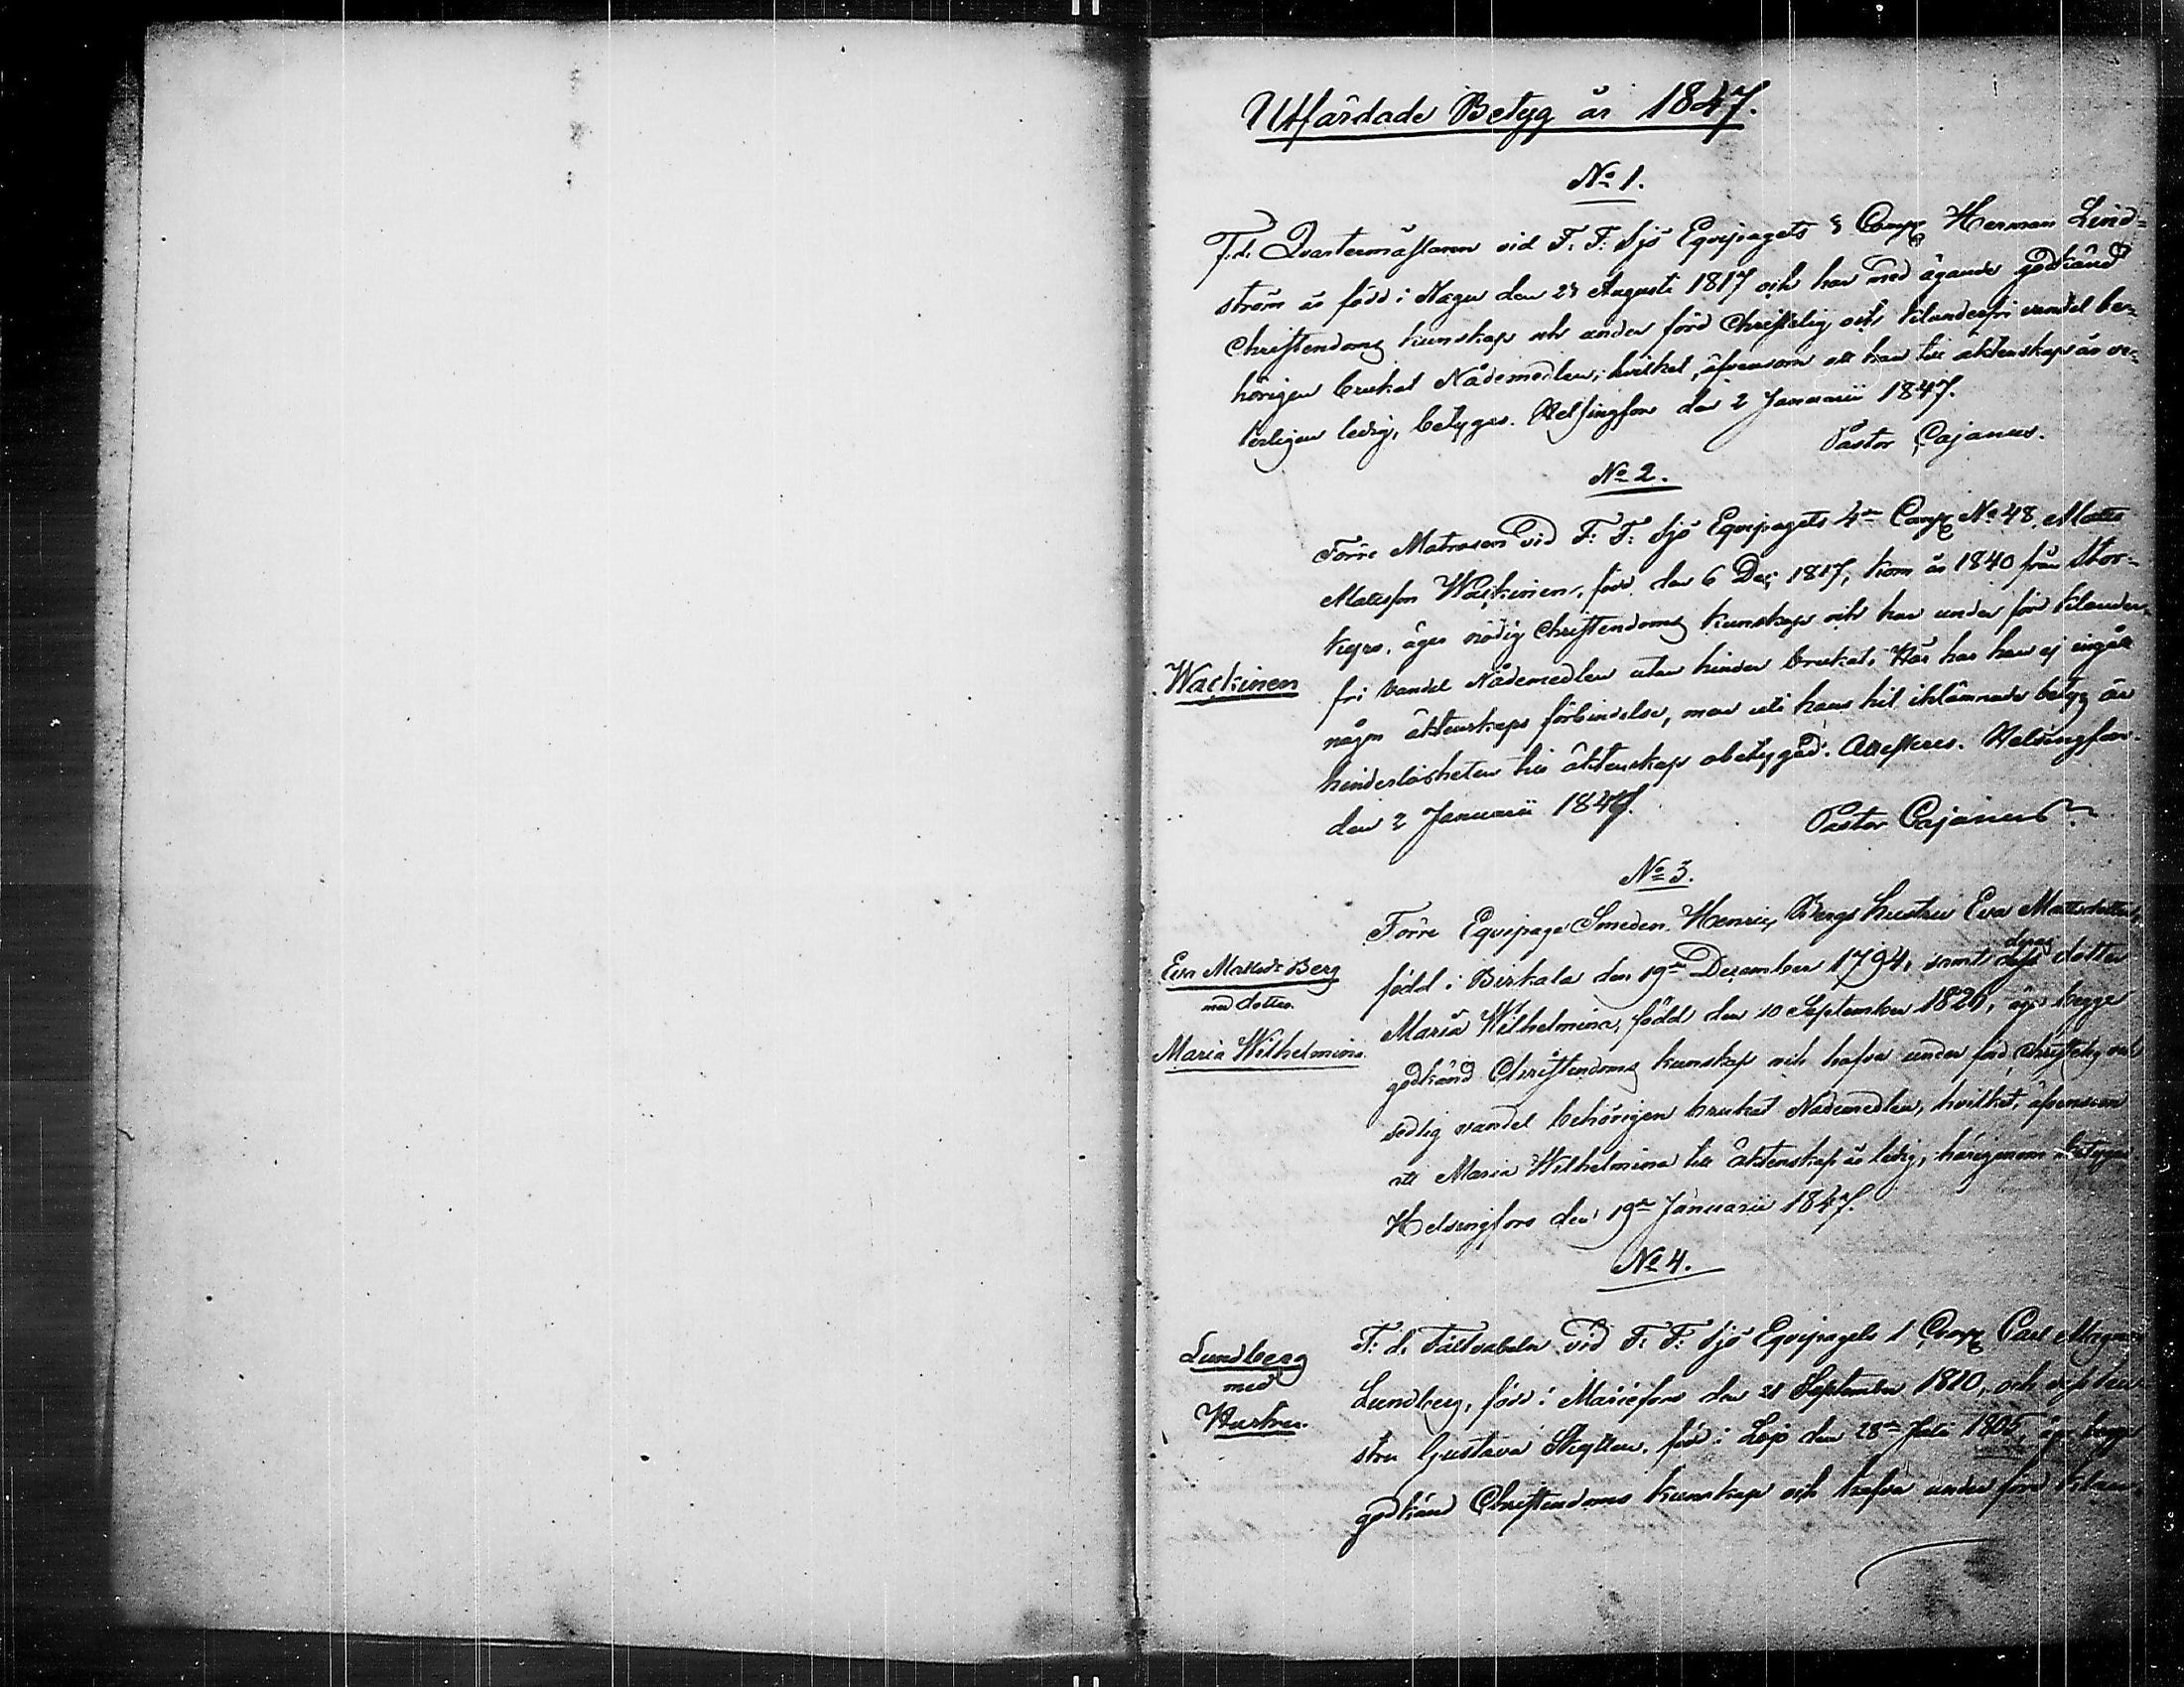 Utfärdade Betyg år 1847.
No 1.
F. d. Qvartermästaren vid F: F: Sjö Equipagets Comp Herman Lind=
ström är född i Nagu den 23 Augusti 1817 och har med ägande godkänd
Christendoms kunskap och under förd Christelig och klanderfri vandel be=
hörigen brukat Nådemedlen; hvilket, äfvensom att han till äktenskap är ve=
terligen ledig, betygas. Helsingfors den 2 Januarii 1847.
Pastor Cajanus.
No 2.
Förre Matrosen vid F: F: Sjö Equipagets 4de Comp No 48, Matts
Mattsson Wackinen, född den 6 Dec 1817, kom år 1840 från Stor=
kyro, äger nödig Christendoms kunskap och har under förd klander=
Wackinen
fri vandel Nådemedlen utan hinder brukat. Här har han ej ingått
någon äktenskaps förbindelse, men uti hans hit inlämnade betyg är
hinderlösheten till äktenskap obetygad. Attesteres. Helsingfors
den 2 Januarii 1847.
Pastor Cajanus
No 3.
Förre Equipage Smeden Henric Bergs hustru Eva Mattsdotter,
Eva Mattsdr Berg
med dotter
Maria Wilhelmina
född i Birkala den 19de December 1794, samt deras dotter
Maria Wilhelmina, född den 10 September 1820, äga begge
godkänd Christendoms kunskap och hafva under förd christelig och
sedlig vandel behörigen brukat Nådemedlen, hvilket, äfvensom
att Maria Wilhelmina till äktenskap är ledig, härigenom betygas
Helsingfors den 19de Januarii 1847.
No 4.
Lundberg
med
Hustru.
F: d. Fältväbeln vid F: F: Sjö Equipagets 1 Comp Carl Magnus
Lundberg, född i Mariefors den 21 September 1810, och dess hu=
stru Gustava född i Lojo den 28de Juli 1805, äga begge
godkänd Christendoms kunskap och hafva under förd klan=